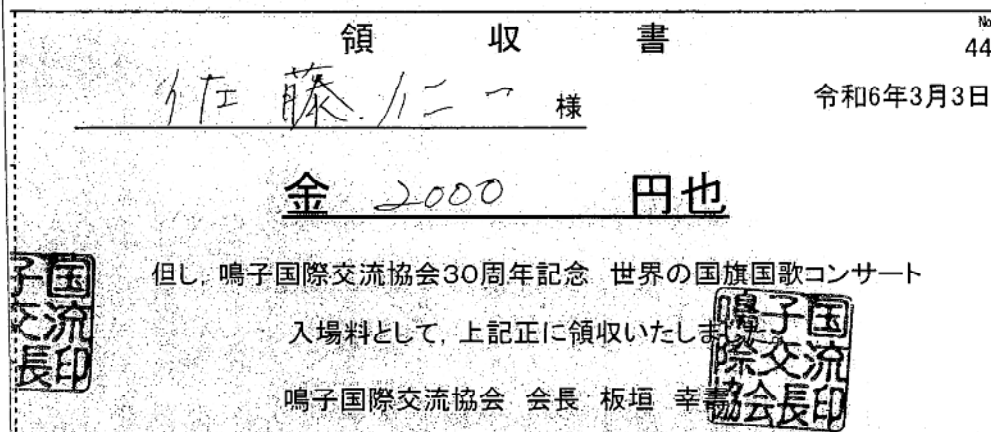 領 収 書
No
44
佐藤仁一 様
令和6年3月3日
金 2000 円也
但し, 鳴子国際交流協会30周年記念 世界の国旗国歌コンサート
入場料として, 上記正に領収いたしました。
鳴子国際交流協会 会長 板垣 幸
子国
交流
長印
鳴子国
際交流
協会長印